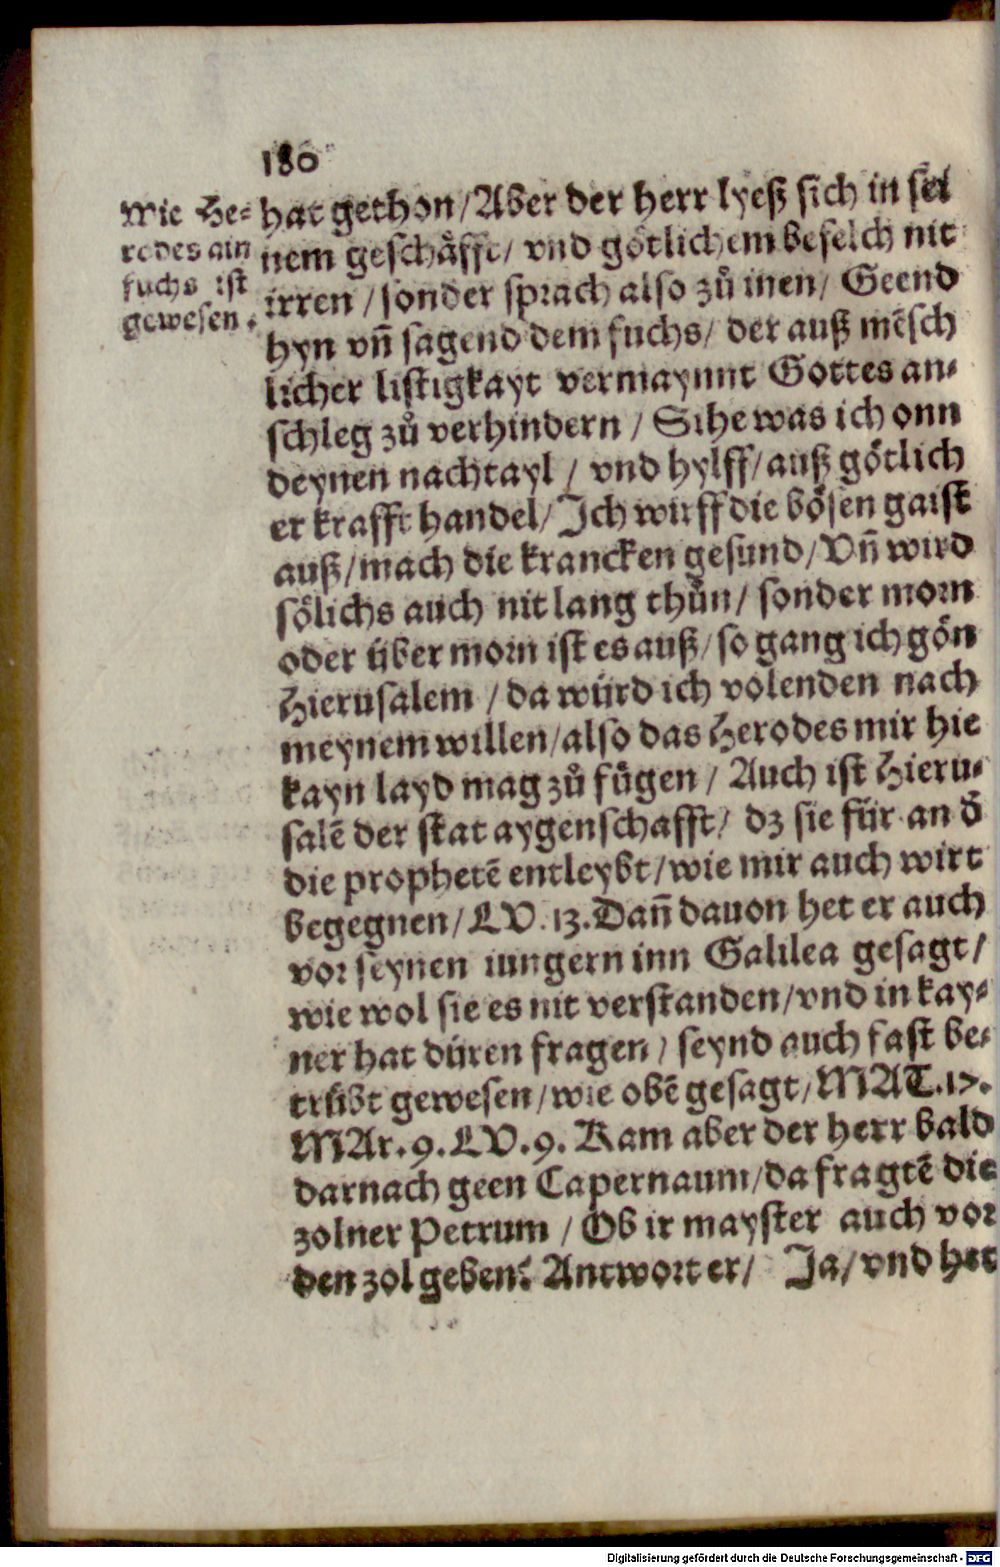 180
Wie He-
rodes ain
fuchs ist
gewesen.
hat gethon/Aber der herr lyeß sich in sei
nem geschäfft/ vnd götlichem befelch nit
irren/sonder sprach also zů inen/ Geend
hyn vñ sagend dem fuchs/ der auß mẽsch
licher listigkayt vermaynnt Gottes an-
schleg zů verhindern/ Sihe was ich onn
deynen nachtayl/ vnd hylff/auß götlich
er krafft handel/ Ich wurff die bösen gaist
auß/mach die krancken gesund/Vñ wird
sölichs auch nit lang thůn/ sonder morn
oder über morn ist es auß/so gang ich gön
Hierusalem/da würd ich volenden nach
meynem willen/also das Herodes mir hie
kayn layd mag zů fügen/ Auch ist Hieru-
salẽ der stat aygenschafft/ dz sie für an d̃
die prophetẽ entleybt/wie mir auch wirt
begegnen/LV. 13. Dañ dauon het er auch
vor seynen iungern inn Galilea gesagt/
wie wol sie es nit verstanden/vnd in kay-
ner hat düren fragen/ seynd auch fast be-
trübt gewesen/wie obẽ gesagt/MAT.17.
MAr.9.LV.9. Kam aber der herr bald
darnach geen Capernaum/da fragtẽ die
zolner Petrum/ Ob ir mayster auch vor
den zol geben? Antwort er/ Ja/vnd het
Digitalisierung gefördert durch die Deutsche Forschungsgemeinschaft - DFG